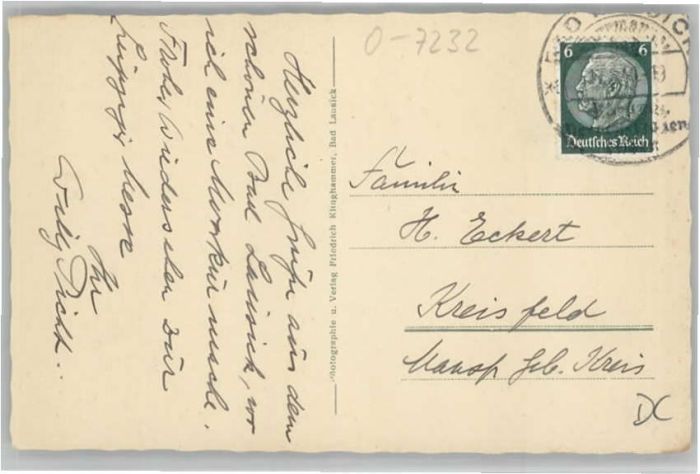 O-7232
Herzliche Grüße aus dem
schönen Bad Lausick, wo
ich eine Moorkur mache.
Frohes Wiedersehen zur
Leipziger Messe
Ihr
Willy
Photographie u. Verlag Friedrich Klinghammer, Bad Lausick
6 6
Deutsches Reich
Familie
H. Eckert
Kreisfeld
Mansf. Geb. Kreis
DC